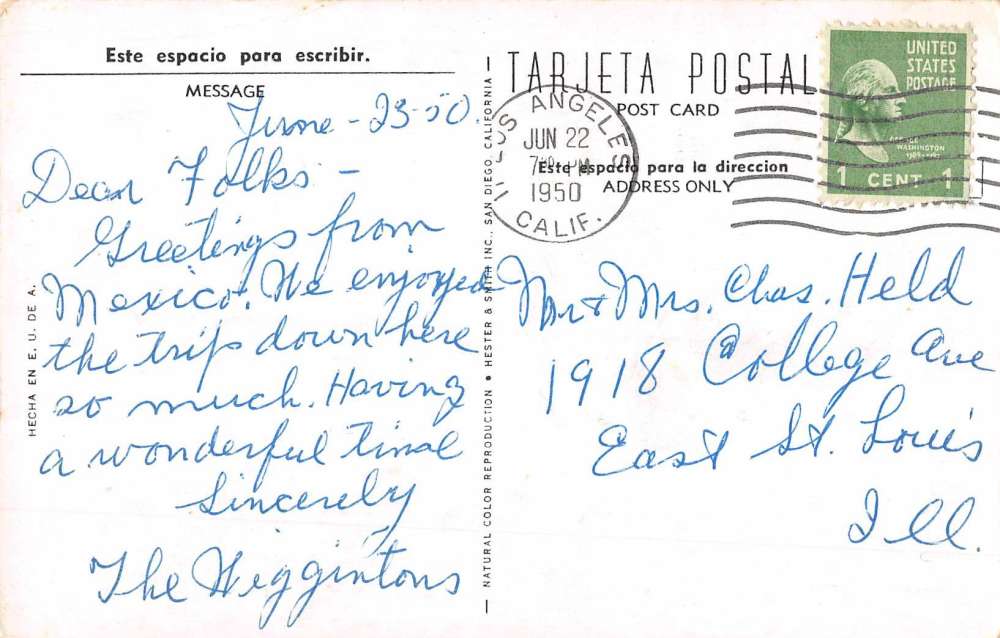 Este espacio para escribir.
MESSAGE
June - 23-50.
Dear Folks -
Greetings from
Mexico. We enjoyed
the trip down here
so much. Having
a wonderful time
Sincerely
The Higgintons
HECHA EN E. U. DE A.
NATURAL COLOR REPRODUCTION • HESTER & SMITH INC., SAN DIEGO, CALIFORNIA
TARJETA POSTAL
POST CARD
Este espacio para la direccion
ADDRESS ONLY
LOS ANGELES
JUN 22
PM
1950
CALIF.
UNITED
STATES
POSTAGE
GEORGE
WASHINGTON
1 CENT 1
Mr & Mrs. Chas. Held
1918 College Ave
East St. Louis
Ill.